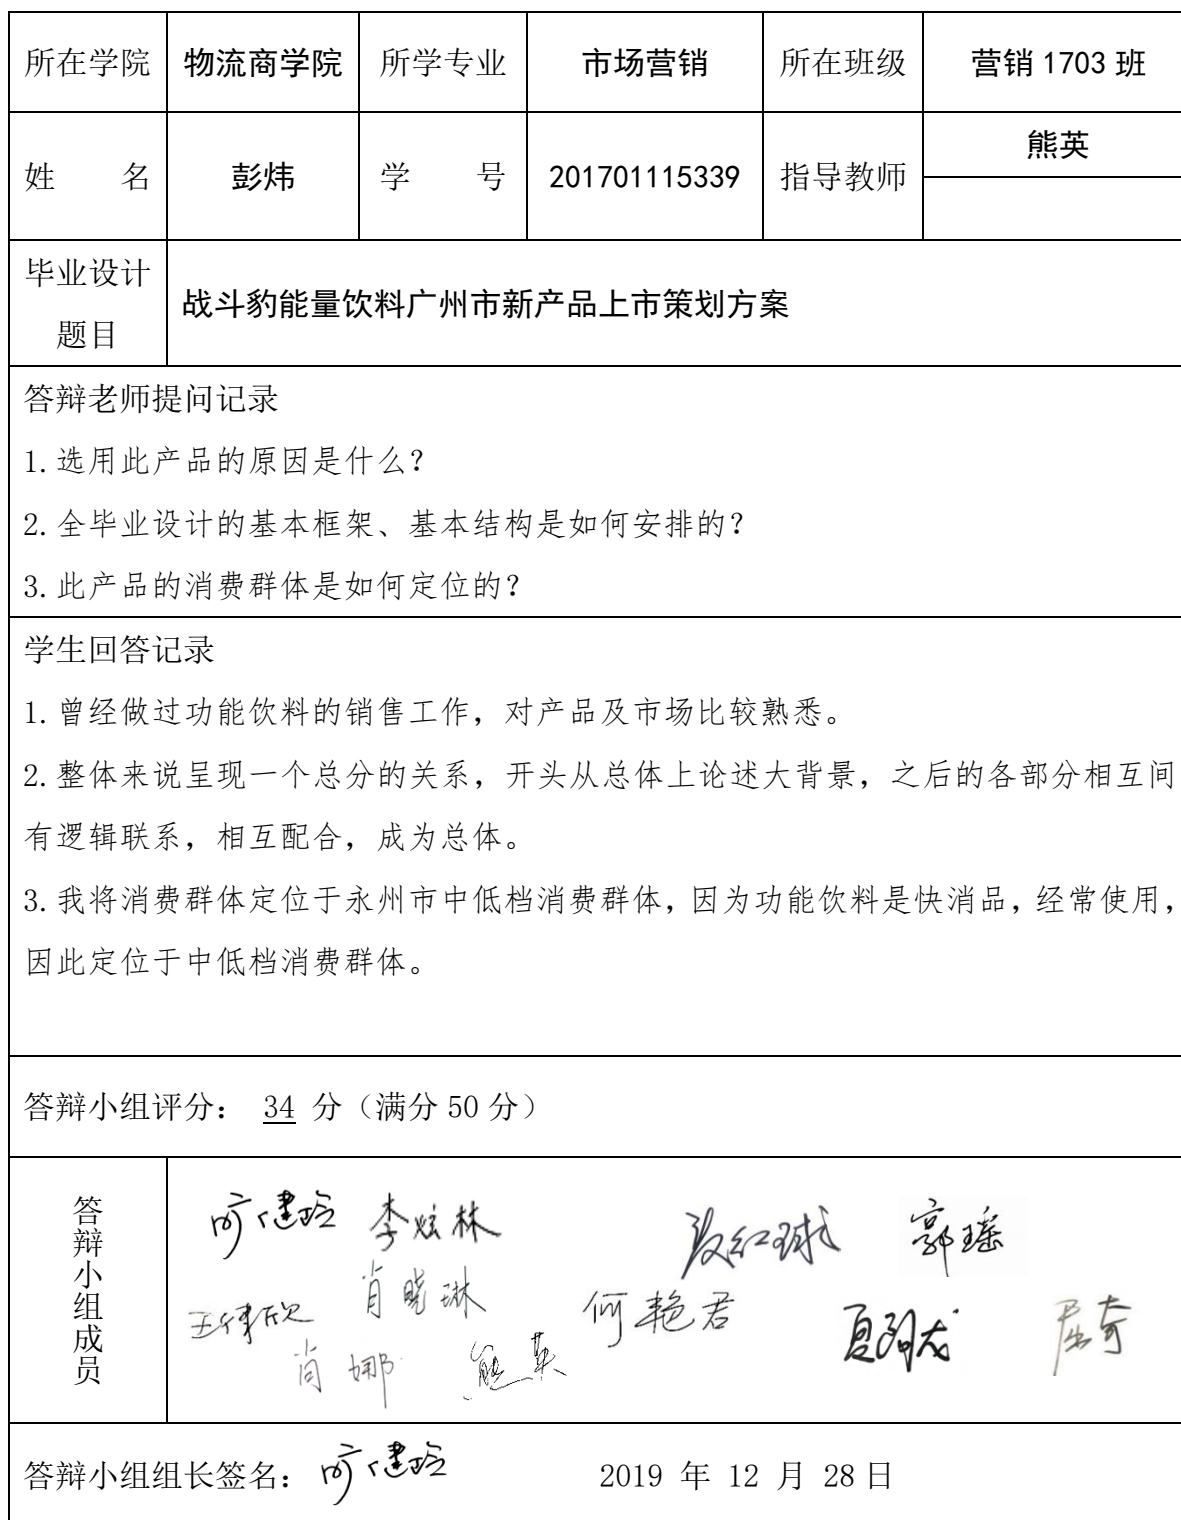 所在学院 物流商学院 所学专业 市场营销 所在班级 营销 1703 班
姓 名 彭炜 学 号 201701115339 指导教师 熊英
毕业设计
题目
战斗豹能量饮料广州市新产品上市策划方案
答辩老师提问记录
1.选用此产品的原因是什么？
2.全毕业设计的基本框架、基本结构是如何安排的？
3.此产品的消费群体是如何定位的？
学生回答记录
1.曾经做过功能饮料的销售工作，对产品及市场比较熟悉。
2.整体来说呈现一个总分的关系，开头从总体上论述大背景，之后的各部分相互间
有逻辑联系，相互配合，成为总体。
3.我将消费群体定位于永州市中低档消费群体，因为功能饮料是快消品，经常使用，
因此定位于中低档消费群体。
答辩小组评分： 34 分（满分 50 分）
答辩小组成员
李炫林 郭瑶
肖晓琳 何艳君
肖娜 熊英 屈奇
答辩小组组长签名： 2019 年 12 月 28 日